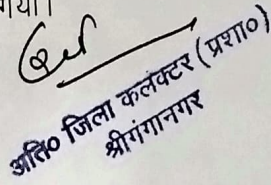 गया।
अति० जिला कलंक्टर (प्रशा०)
श्रीगंगानगर